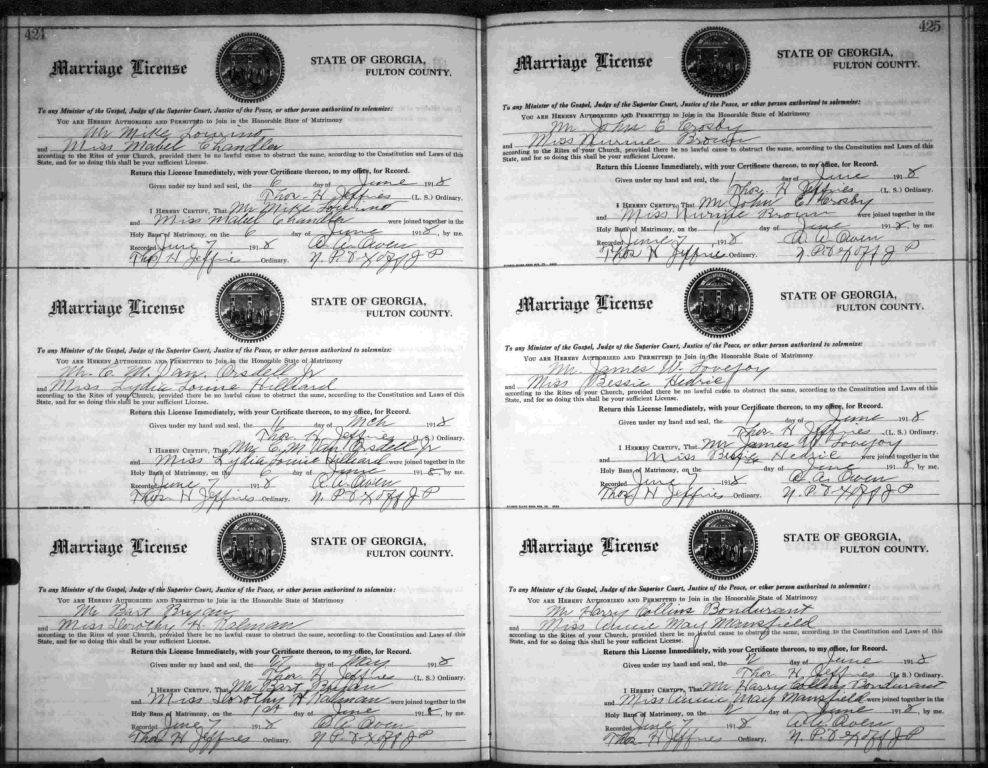 424
Marriage License
STATE OF GEORGIA,
FULTON COUNTY.
To any Minister of the Gospel, Judge of the Superior Court, Justice of the Peace, or other person authorized to solemnize:
YOU ARE HEREBY AUTHORIZED AND PERMITTED to Join in the Honorable State of Matrimony
Mr Mike
and Miss Mabel Chandler
according to the Rites of your Church, provided there be no lawful cause to obstruct the same, according to the Constitution and Laws of this
State, and for so doing this shall be your sufficient License.
Return this License Immediately, with your Certificate thereon, to my office, for Record.
Given under my hand and seal, the 6 day of June 1918
Thos. H Jeffries (L. S.) Ordinary.
I HEREBY CERTIFY, That Mr Mike
and Miss Mabel Chandler were joined together in the
Holy Bans of Matrimony, on the 6 day of June 1918, by me.
Recorded June 7 1918 Owen
Thos H Jeffries Ordinary. N. P. & Ex off J P
Marriage License
STATE OF GEORGIA,
FULTON COUNTY.
To any Minister of the Gospel, Judge of the Superior Court, Justice of the Peace, or other person authorized to solemnize:
YOU ARE HEREBY AUTHORIZED AND PERMITTED to Join in the Honorable State of Matrimony
Mr. C. M. Van Orsdell Jr
and Miss Lydia Louise Hilliard
according to the Rites of your Church, provided there be no lawful cause to obstruct the same, according to the Constitution and Laws of this
State, and for so doing this shall be your sufficient License.
Return this License Immediately, with your Certificate thereon, to my office, for Record.
Given under my hand and seal, the 6 day of Mch 1918
Thos. H Jeffries (L. S.) Ordinary.
I HEREBY CERTIFY, That Mr. C. M Van Orsdell Jr
and Miss Lydia Louise Hilliard were joined together in the
Holy Bans of Matrimony, on the 6 day of June 1918, by me.
Recorded June 7 1918 Owen
Thos. H Jeffries Ordinary. N. P. & Ex off J P
Marriage License
STATE OF GEORGIA,
FULTON COUNTY.
To any Minister of the Gospel, Judge of the Superior Court, Justice of the Peace, or other person authorized to solemnize:
YOU ARE HEREBY AUTHORIZED AND PERMITTED to Join in the Honorable State of Matrimony
Mr Bart Bryan
and Miss Dorothy H.
according to the Rites of your Church, provided there be no lawful cause to obstruct the same, according to the Constitution and Laws of this
State, and for so doing this shall be your sufficient License.
Return this License Immediately, with your Certificate thereon, to my office, for Record.
Given under my hand and seal, the 27 day of May 1918
Thos H Jeffries (L. S.) Ordinary.
I HEREBY CERTIFY, That Mr Bart Bryan
and Miss Dorothy H were joined together in the
Holy Bans of Matrimony, on the 1st day of June 1918, by me.
Recorded June 7 1918 Owen
Thos H Jeffries Ordinary. N. P. & Ex off J P
425
Marriage License
STATE OF GEORGIA,
FULTON COUNTY.
To any Minister of the Gospel, Judge of the Superior Court, Justice of the Peace, or other person authorized to solemnize:
YOU ARE HEREBY AUTHORIZED AND PERMITTED to Join in the Honorable State of Matrimony
Mr John E Crosby
and Miss Brown
according to the Rites of your Church, provided there be no lawful cause to obstruct the same, according to the Constitution and Laws of this
State, and for so doing this shall be your sufficient License.
Return this License Immediately, with your Certificate thereon, to my office, for Record.
Given under my hand and seal, the 1 day of June 1918
Thos. H Jeffries (L. S.) Ordinary.
I HEREBY CERTIFY, That Mr John E Crosby
and Miss Brown were joined together in the
Holy Bans of Matrimony, on the 1 day of June 1918, by me.
Recorded June 7 1918 Owen
Thos H Jeffries Ordinary. N. P. & Ex off J P
Marriage License
STATE OF GEORGIA,
FULTON COUNTY.
To any Minister of the Gospel, Judge of the Superior Court, Justice of the Peace, or other person authorized to solemnize:
YOU ARE HEREBY AUTHORIZED AND PERMITTED to Join in the Honorable State of Matrimony
Mr. James W. Lovejoy
and Miss Bessie Hedric
according to the Rites of your Church, provided there be no lawful cause to obstruct the same, according to the Constitution and Laws of this
State, and for so doing this shall be your sufficient License.
Return this License Immediately, with your Certificate thereon, to my office, for Record.
Given under my hand and seal, the 1 day of June 1918
Thos H Jeffries (L. S.) Ordinary.
I HEREBY CERTIFY, That Mr James W Lovejoy
and Miss Bessie Hedric were joined together in the
Holy Bans of Matrimony, on the day of June 1918, by me.
Recorded June 7 1918 Owen
Thos H Jeffries Ordinary. N. P. & Ex off J P
Marriage License
STATE OF GEORGIA,
FULTON COUNTY.
To any Minister of the Gospel, Judge of the Superior Court, Justice of the Peace, or other person authorized to solemnize:
YOU ARE HEREBY AUTHORIZED AND PERMITTED to Join in the Honorable State of Matrimony
Mr Harry Collins Bondurant
and Miss Annie May Mansfield
according to the Rites of your Church, provided there be no lawful cause to obstruct the same, according to the Constitution and Laws of this
State, and for so doing this shall be your sufficient License.
Return this License Immediately, with your Certificate thereon, to my office, for Record.
Given under my hand and seal, the 2 day of June 1918
Thos H Jeffries (L. S.) Ordinary.
I HEREBY CERTIFY, That Mr Harry Collins Bondurant
and Miss Annie May Mansfield were joined together in the
Holy Bans of Matrimony, on the 2 day of June 1918, by me.
Recorded June 7 1918 Owen
Thos H Jeffries Ordinary. N. P. & Ex off J P